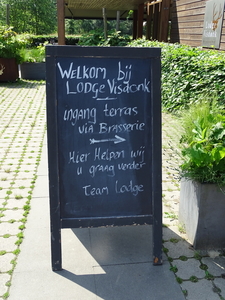 Welkom bij
Lodge Visdonk
ingang terras
via Brasserie
Hier Helpen wij
u graag verder
Team Lodge